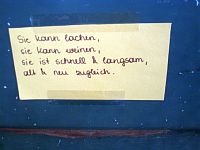 Sie kann lachen,
sie kann weinen,
sie ist schnell & langsam,
alt & neu zugleich.